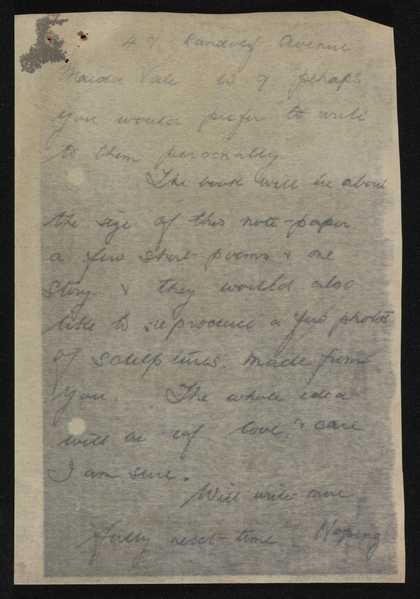 47 Randolf Avenue
Maida Vale W 9 perhaps
you would prefer to write
to them personally
The book will be about
the size of this note-paper
a few short poems & one
story & they would also
like to reproduce a few photos
of sculptures. made from
you. The whole idea
will be of love & care
I am sure.
Will write more
fully next-time Hoping